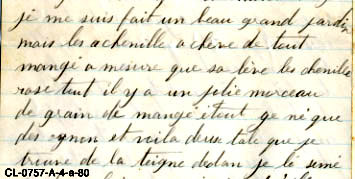 je me suis fait un beau grand jardin
mais les achenille achève de tout
mangé a mesure que sa lève les chenilles
rase tout il y a un jolie morceau
de grain de mangé itout ge né que
des ognon et voila deux tale que je
trouve de la teigne dedan je lé semé
CL-0757-A-4-a-80